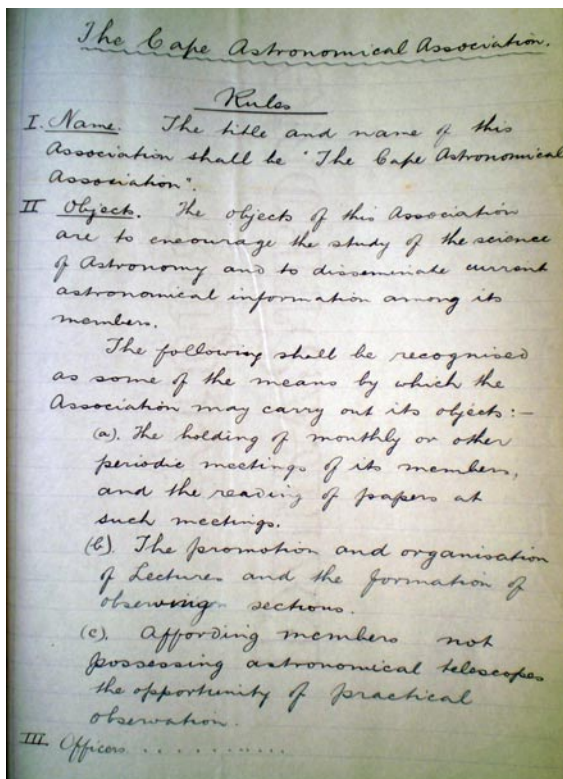 The Cape Astronomical Association.
Rules
I. Name. The title and name of this
Association shall be "The Cape Astronomical
Association".
II Objects. The objects of this Association
are to encourage the study of the science
of Astronomy and to disseminate current
astronomical information among its
members.
The following shall be recognised
as some of the means by which the
Association may carry out its objects:-
(a). The holding of monthly or other
periodic meetings of its members,
and the reading of papers at
such meetings.
(b). The promotion and organisation
of Lectures and the formation of
observing sections.
(c). Affording members not
possessing astronomical telescopes
the opportunity of practical
observation.
III. Officers...........